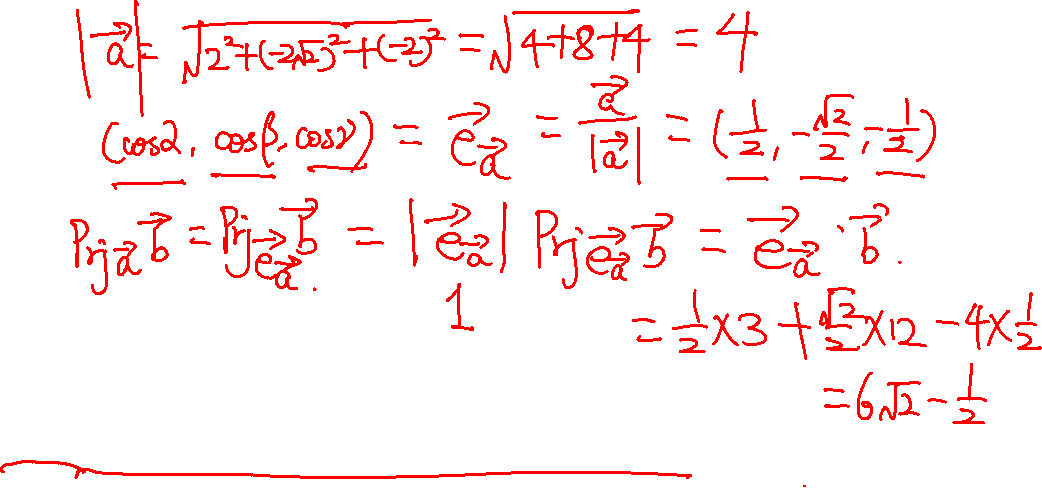 |a⃗| = √(2²+(-2√2)²+(-2)²) = √(4+8+4) = 4
(cosα, cosβ, cosγ) = e⃗_a⃗ = a⃗/|a⃗| = (1/2, -√2/2, -1/2)
Prj_a⃗ b⃗ = Prj_e⃗_a⃗ b⃗ = |e⃗_a⃗| Prj_e⃗_a⃗ b⃗ = e⃗_a⃗ · b⃗.
1
= 1/2 × 3 + √2/2 × 12 - 4 × 1/2
= 6√2 - 1/2